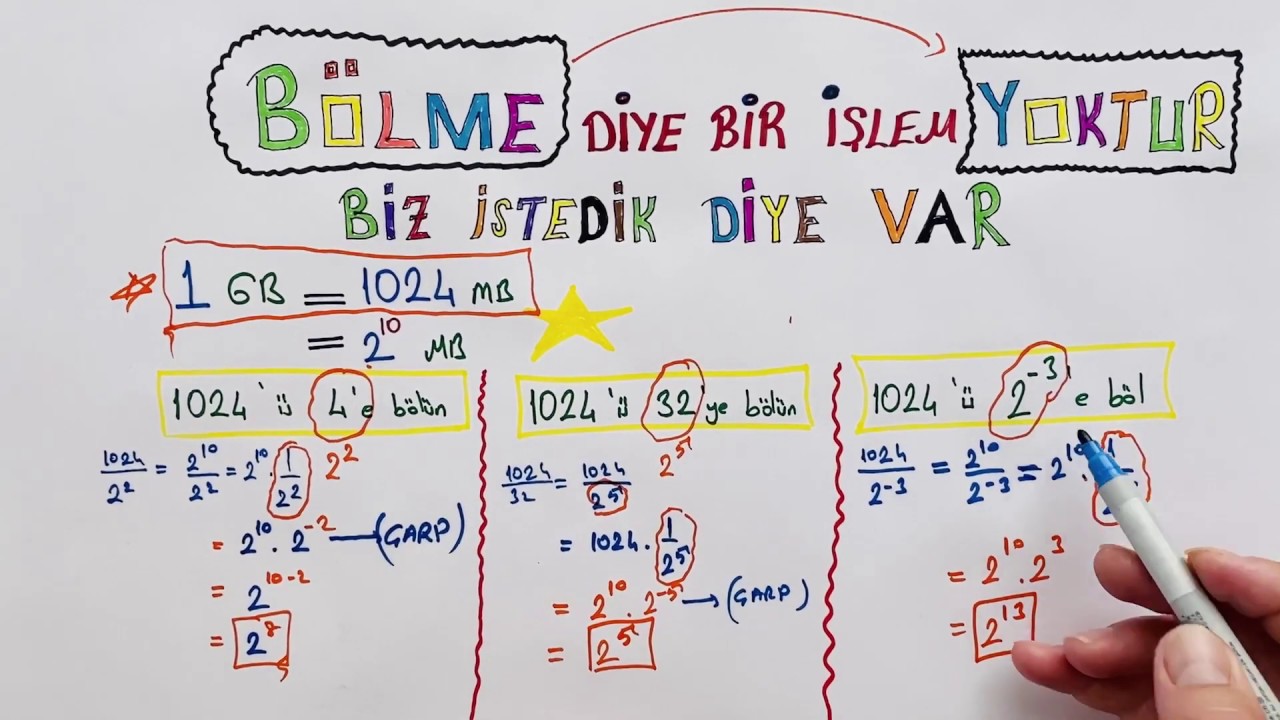 BÖLME DİYE BİR İŞLEM YOKTUR
BİZ İSTEDİK DİYE VAR
1 GB = 1024 MB
= 2^10 MB
1024'ü 4'e bölün
1024/2^2 = 2^10/2^2 = 2^10 . 1/2^2 2^2
= 2^10 . 2^-2 → (ÇARP)
= 2^10-2
= 2^8
1024'ü 32 ye bölün
1024/32 = 1024/2^5 2^5
= 1024 . 1/2^5
= 2^10 . 2^-5 → (ÇARP)
= 2^5
1024'ü 2^-3 'e böl
1024/2^-3 = 2^10/2^-3 = 2^10 . 1/2
= 2^10 . 2^3
= 2^13